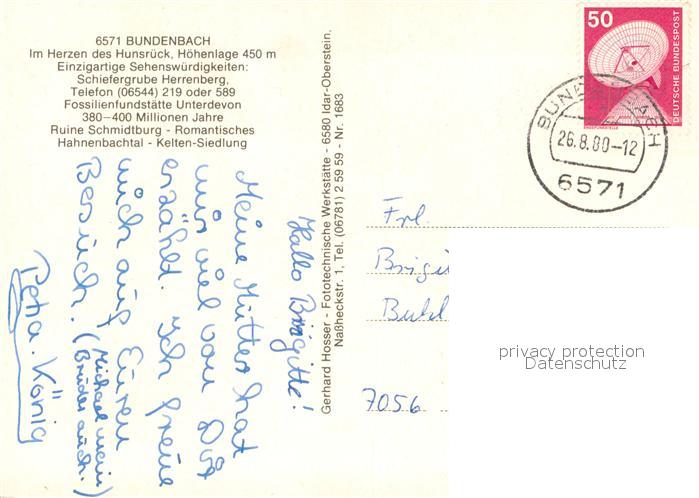 6571 BUNDENBACH
Im Herzen des Hunsrück, Höhenlage 450 m
Einzigartige Sehenswürdigkeiten:
Schiefergrube Herrenberg,
Telefon (06544) 219 oder 589
Fossilienfundstätte Unterdevon
380–400 Millionen Jahre
Ruine Schmidtburg - Romantisches
Hahnenbachtal - Kelten-Siedlung
Hallo Brigitte!
Meine Mutter hat
mir viel von Dir
erzählt. Ich freue
mich auf Euren
Besuch. (Michael mein
Bruder auch.)
Petra König
Gerhard Hosser - Fototechnische Werkstätte - 6580 Idar-Oberstein,
Naßheckstr. 1, Tel. (06781) 2 59 59 - Nr. 1683
50
DEUTSCHE BUNDESPOST
ERDEFUNKSTELLE
BUNDENBACH
26.8.80-12
6571
Frl.
Brigi
Buhl
7056
privacy protection
Datenschutz